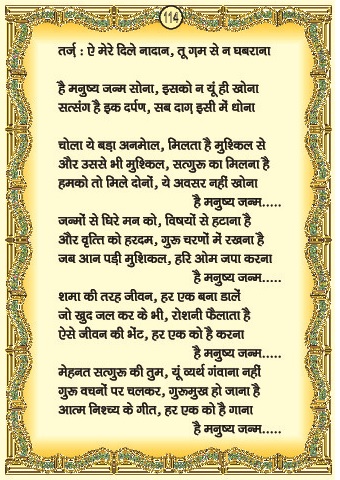 114
तर्ज़ : ऐ मेरे दिले नादान, तू ग़म से न घबराना
है मनुष्य जन्म सोना, इसको न यूं ही खोना
सत्संग है इक दर्पण, सब दाग़ इसी में धोना
चोला ये बड़ा अनमोल, मिलता है मुश्किल से
और उससे भी मुश्किल, सत्गुरू का मिलना है
हमको तो मिले दोनों, ये अवसर नहीं खोना
है मनुष्य जन्म.....
जन्मों से घिरे मन को, विषयों से हटाना है
और वृत्ति को हरदम, गुरू चरणों में रखना है
जब आन पड़ी मुशिकल, हरि ओम जपा करना
है मनुष्य जन्म...
शमा की तरह जीवन, हर एक बना डालें
जो खुद जल कर के भी, रोशनी फैलाता है
ऐसे जीवन की भेंट, हर एक को है करना
है मनुष्य जन्म.....
मेहनत सत्गुरू की तुम, यूं व्यर्थ गंवाना नहीं
गुरू वचनों पर चलकर, गुरूमुख हो जाना है
आत्म निश्च्य के गीत, हर एक को है गाना
है मनुष्य जन्म.....